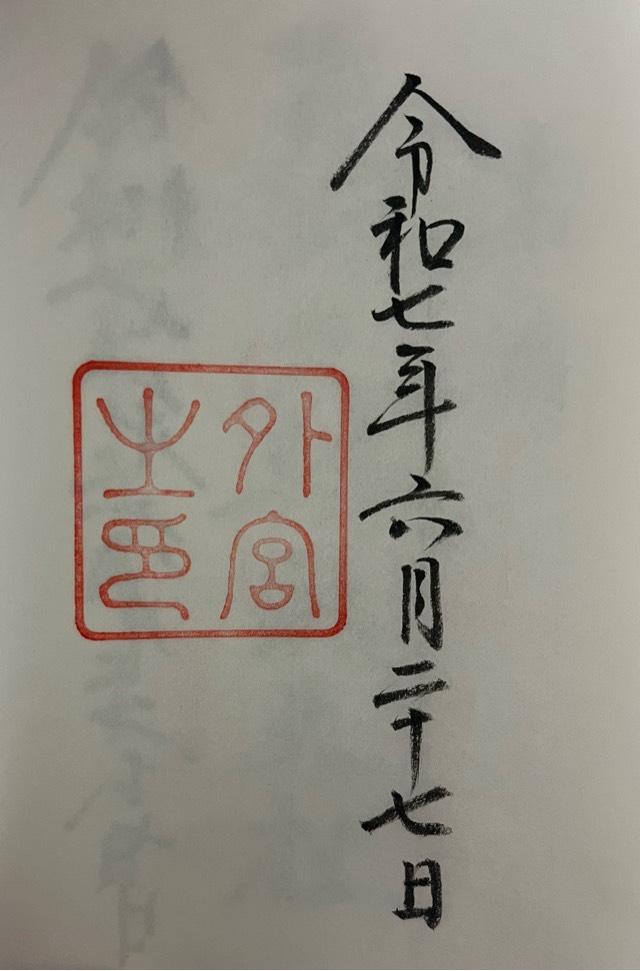 令和七年六月二十七日
外宮
之印